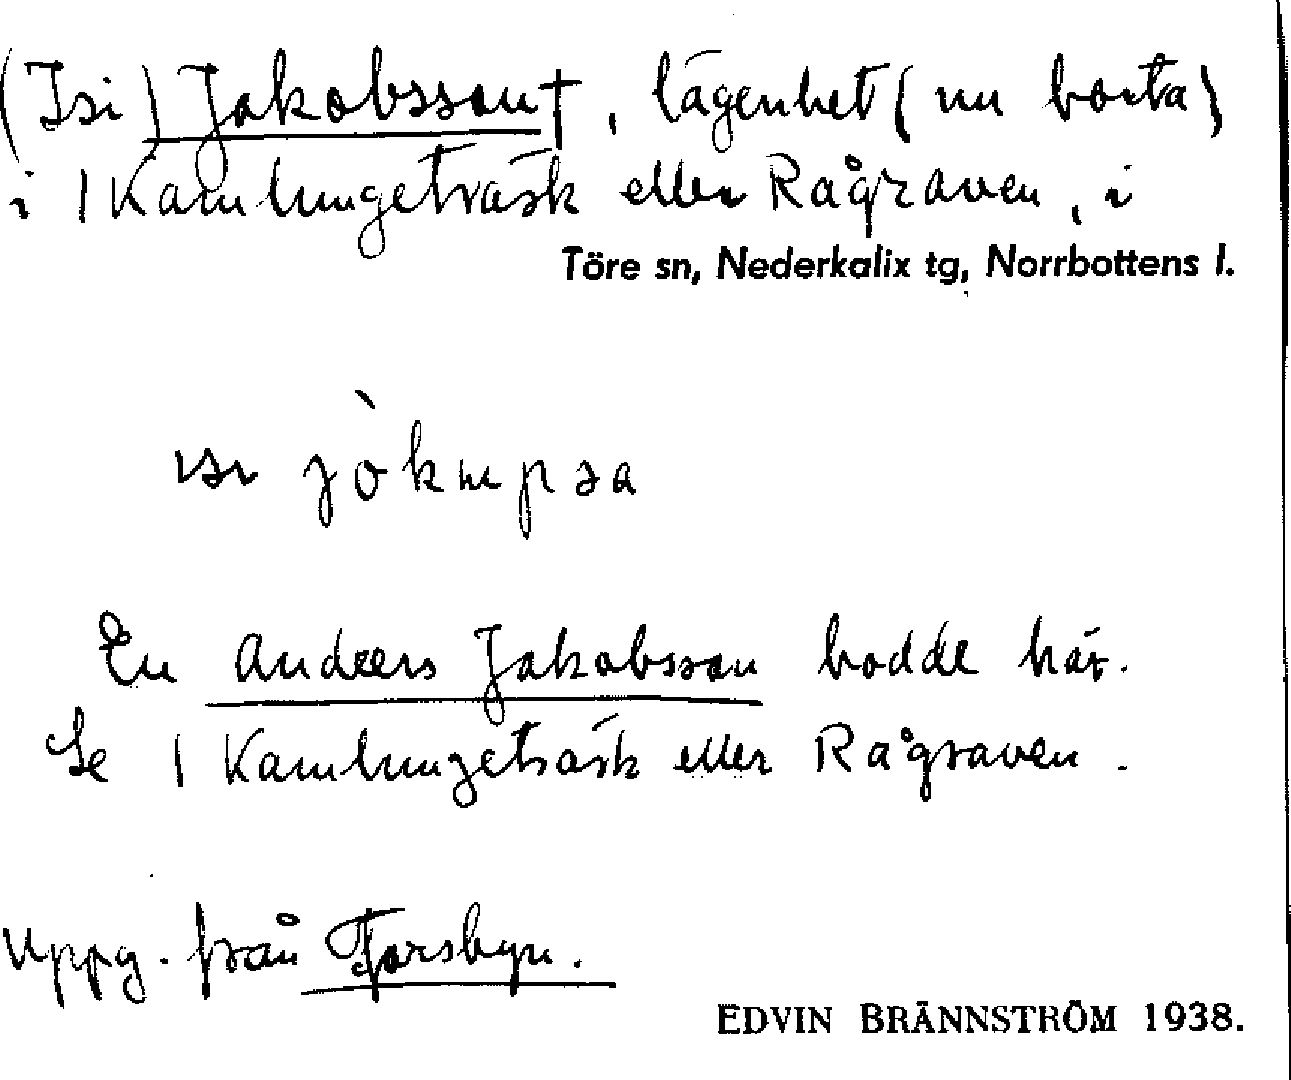 (Isi) Jakobsson†, lägenhet (nu borta)
i 1 Kamlungeträsk eller Rågraven, i
Töre sn, Nederkalix tg, Norrbottens l.
ɪsɪ jòkɯpsa
En Anders Jakobsson bodde här.
Se 1 Kamlungeträsk eller Rågraven.
Uppg. från Forsbyn.
EDVIN BRÄNNSTRÖM 1938.